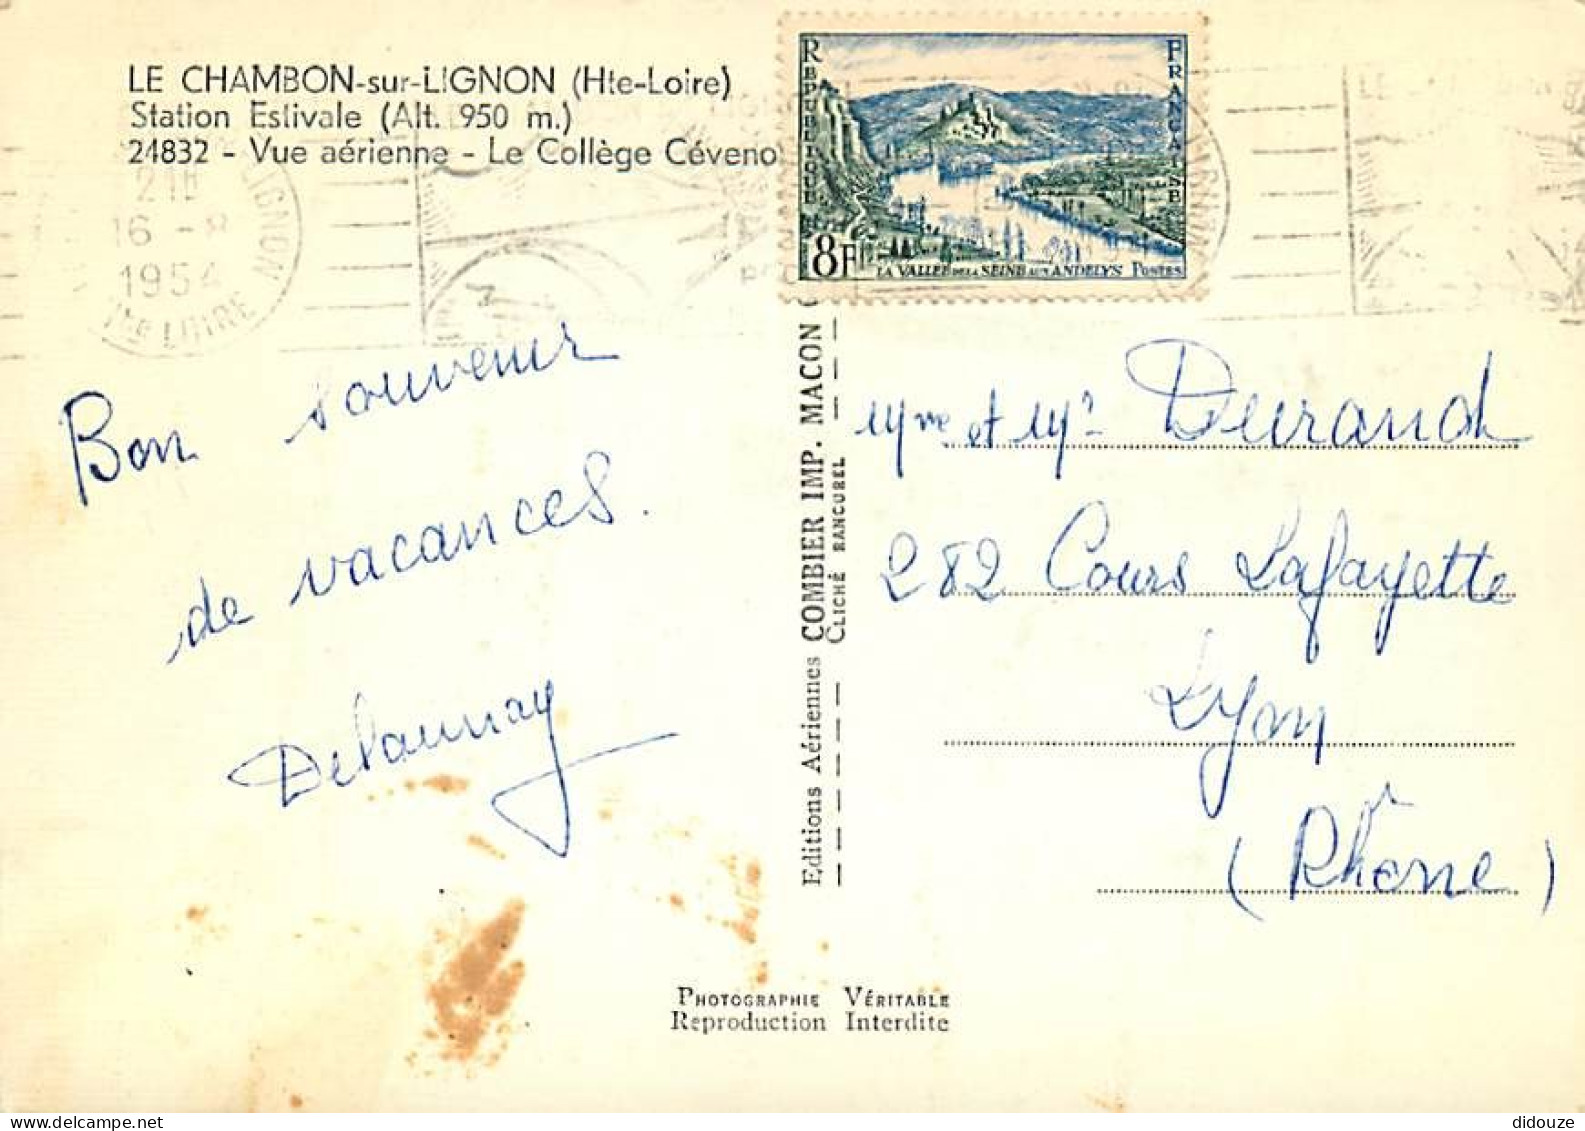 LE CHAMBON-sur-LIGNON (Hte-Loire)
Station Estivale (Alt. 950 m.)
24832 - Vue aérienne - Le Collège Céveno
LIGNON
21H
16 - 8
1954
Hte LOIRE
REPUBLIQUE
FRANÇAISE
8F
LA VALLEE DE LA SEINE AUX ANDELYS POSTES
Bon souvenir
de vacances.
Delaunay
Editions Aériennes COMBIER IMP. MACON
CLICHÉ RANCUREL
Mme et Mr Durand
282 Cours Lafayette
Lyon
(Rhône)
PHOTOGRAPHIE VÉRITABLE
Reproduction Interdite
didouze